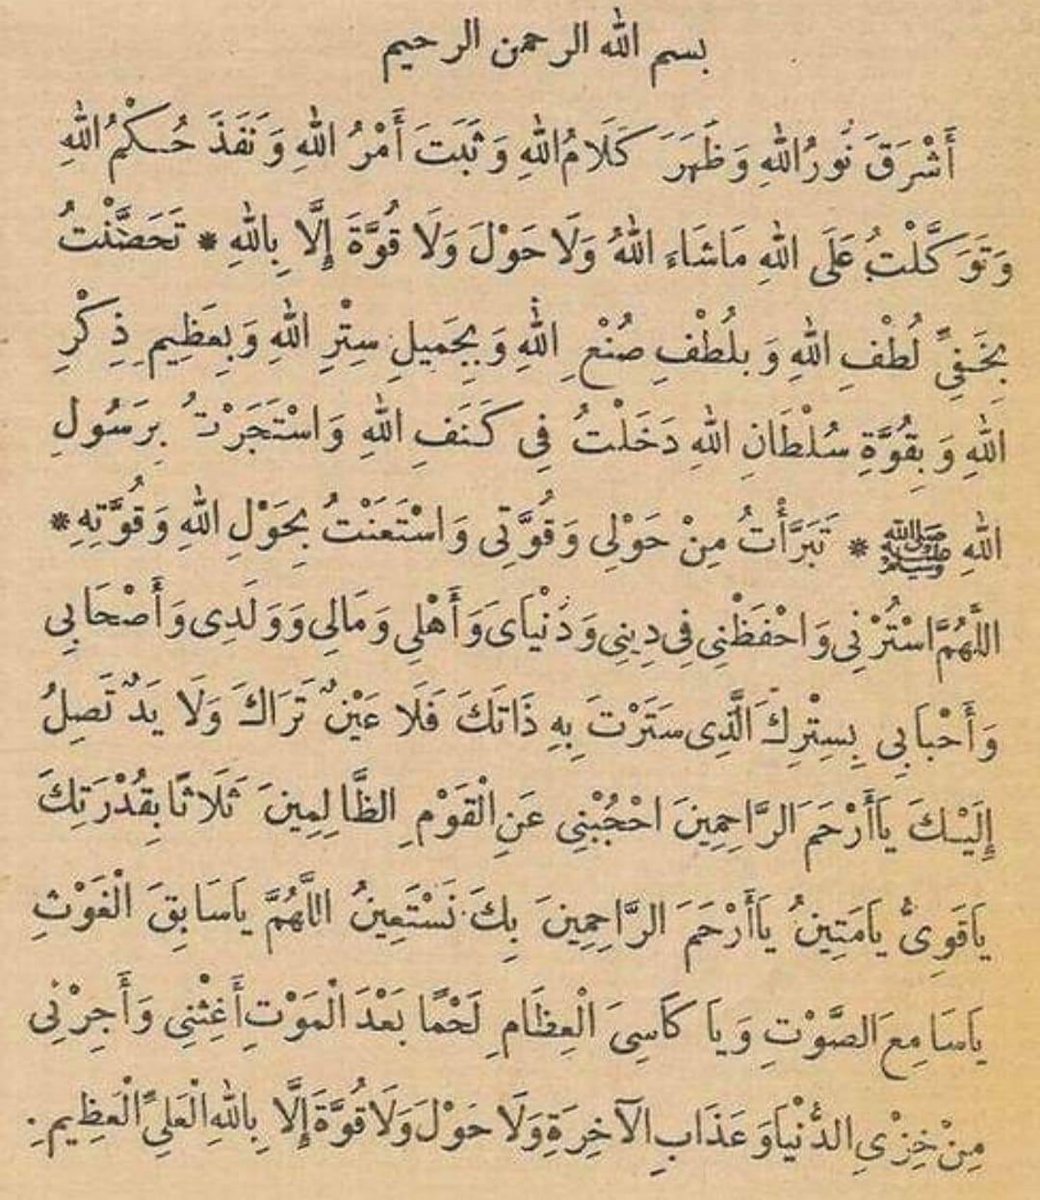 بسم الله الرحمن الرحيم
أَشْرَقَ نُورُ اللهِ وَظَهَرَ كَلَامُ اللهِ وَثَبَتَ أَمْرُ اللهِ وَنَفَذَ حُكْمُ اللهِ
وَتَوَكَّلْتُ عَلَى اللهِ مَاشَاءَ اللهُ وَلَا حَوْلَ وَلَا قُوَّةَ إِلَّا بِاللهِ * تَحَصَّنْتُ
بِخَفِىِّ لُطْفِ اللهِ وَبِلُطْفِ صُنْعِ اللهِ وَبِجَمِيلِ سِتْرِ اللهِ وَبِعَظِيمِ ذِكْرِ
اللهِ وَبِقُوَّةِ سُلْطَانِ اللهِ دَخَلْتُ فِى كَنَفِ اللهِ وَاسْتَجَرْتُ بِرَسُولِ
اللهِ ﷺ * تَبَرَّأْتُ مِنْ حَوْلِى وَقُوَّتِى وَاسْتَعَنْتُ بِحَوْلِ اللهِ وَقُوَّتِهِ *
اللَّهُمَّ اسْتُرْنِى وَاحْفَظْنِى فِى دِينِى وَدُنْيَاىَ وَأَهْلِى وَمَالِى وَوَلَدِى وَأَصْحَابِى
وَأَحْبَابِى بِسِتْرِكَ الَّذِى سَتَرْتَ بِهِ ذَاتَكَ فَلَا عَيْنٌ تَرَاكَ وَلَا يَدٌ تَصِلُ
إِلَيْكَ يَاأَرْحَمَ الرَّاحِمِينَ احْجُبْنِى عَنِ الْقَوْمِ الظَّالِمِينَ ثَلَاثًا بِقُدْرَتِكَ
يَاقَوِىُّ يَامَتِينُ يَاأَرْحَمَ الرَّاحِمِينَ بِكَ نَسْتَعِينُ اللَّهُمَّ يَاسَابِقَ الْغَوْثِ
يَاسَامِعَ الصَّوْتِ وَيَا كَاسِىَ الْعِظَامِ لَحْمًا بَعْدَ الْمَوْتِ أَغِثْنِى وَأَجِرْنِى
مِنْ خِزْىِ الدُّنْيَا وَعَذَابِ الآخِرَةِ وَلَا حَوْلَ وَلَا قُوَّةَ إِلَّا بِاللهِ الْعَلِىِّ الْعَظِيمِ.